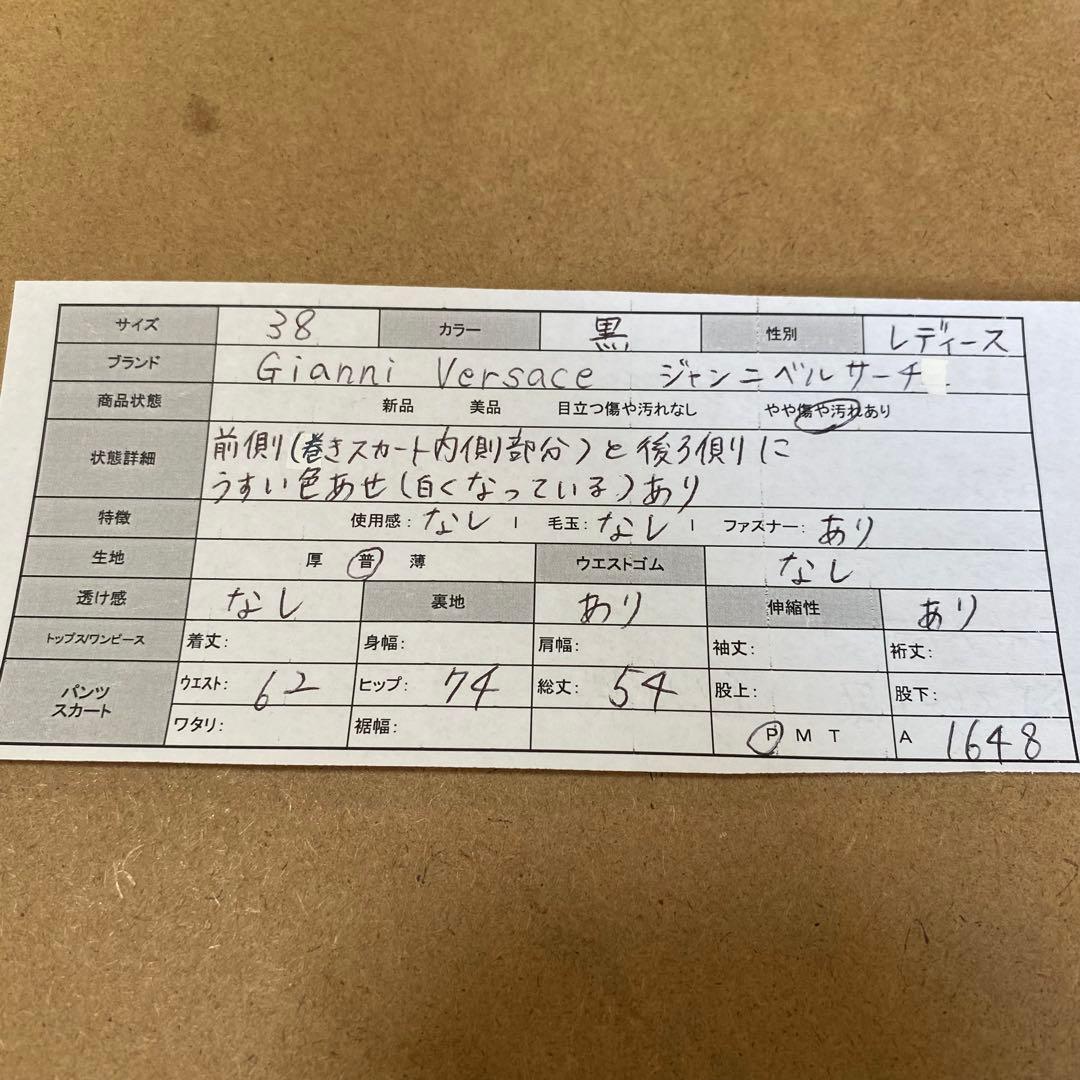 サイズ 38 カラー 黒 性別 レディース
ブランド Gianni Versace ジャンニベルサーチ
商品状態 新品 美品 目立つ傷や汚れなし やや傷や汚れあり
状態詳細 前側(巻きスカート内側部分)と後ろ側りに
うすい色あせ(白くなっている)あり
特徴 使用感:なし | 毛玉:なし | ファスナー:あり
生地 厚 普 薄 ウエストゴム なし
透け感 なし 裏地 あり 伸縮性 あり
トップス/ワンピース 着丈: 身幅: 肩幅: 袖丈: 裄丈:
パンツ スカート ウエスト: 62 ヒップ: 74 総丈: 54 股上: 股下:
ワタリ: 裾幅: P M T A 1648